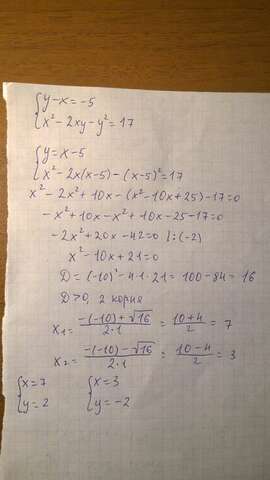 {y-x=-5
{x²-2xy-y²=17
{y=x-5
{x²-2x(x-5)-(x-5)²=17
x²-2x²+10x-(x²-10x+25)-17=0
-x²+10x-x²+10x-25-17=0
-2x²+20x-42=0 |:(-2)
x²-10x+21=0
D=(-10)²-4·1·21=100-84=16
D>0, 2 корня
x₁=(-(-10)+√16)/(2·1)=(10+4)/2=7
x₂=(-(-10)-√16)/(2·1)=(10-4)/2=3
{x=7 {x=3
{y=2 {y=-2